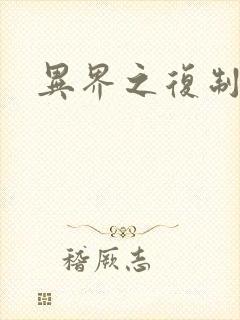 異界之復制
稽厥志